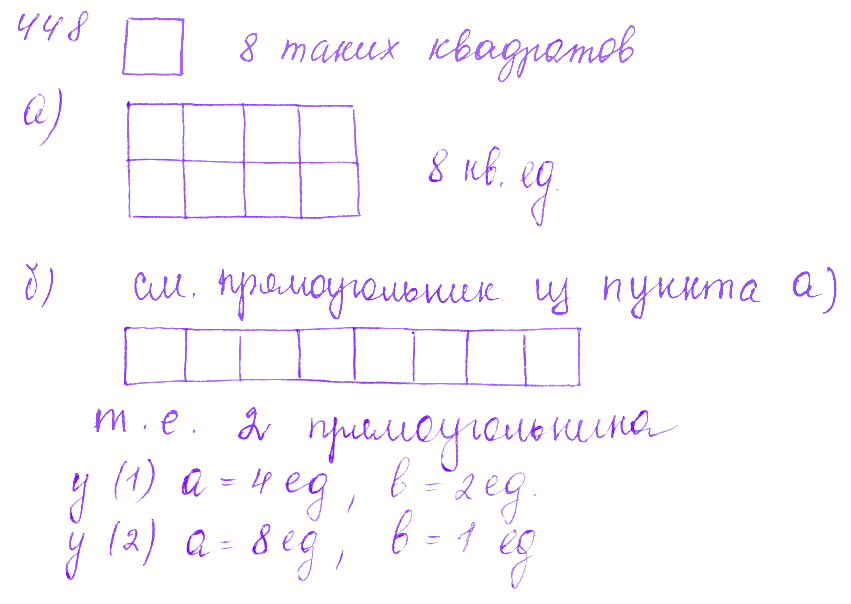 448 8 таких квадратов
а)
8 кв. ед.
б) см. прямоугольник из пункта а)
т.е. 2 прямоугольника
у (1) а = 4 ед, в = 2 ед.
у (2) а = 8 ед, в = 1 ед